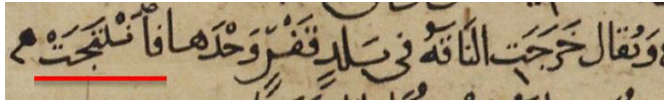 وَيُقَال خَرَجَتِ النَّاقَةُ فى بَلَدٍ قَفْرٍ وَحْدَهَا فَانْتَجَتْ